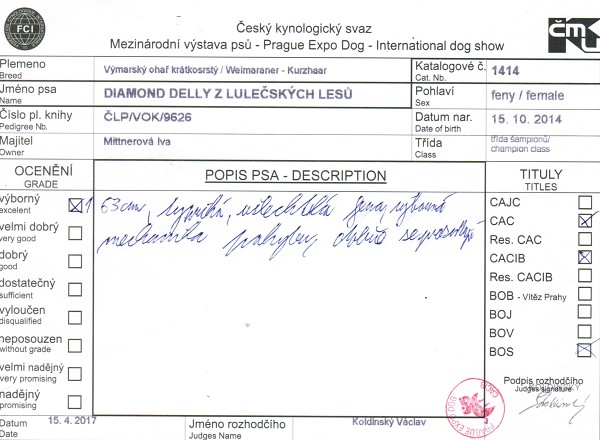 FCI
Český kynologický svaz
Mezinárodní výstava psů - Prague Expo Dog - International dog show
ČMKU
Plemeno
Breed
Výmarský ohař krátkosrstý / Weimaraner - Kurzhaar
Katalogové č.
Cat. Nb.
1414
Jméno psa
Name
DIAMOND DELLY Z LULEČSKÝCH LESŮ
Pohlaví
Sex
feny / female
Číslo pl. knihy
Pedigree Nb.
ČLP/VOK/9626
Datum nar.
Date of birth
15. 10. 2014
Majitel
Owner
Mittnerová Iva
Třída
Class
třída šampionů/
champion class
OCENĚNÍ
GRADE
POPIS PSA - DESCRIPTION
TITULY
TITLES
výborný
excelent
1
velmi dobrý
very good
dobrý
good
dostatečný
sufficient
vyloučen
disqualified
neposouzen
without grade
velmi nadějný
very promising
nadějný
promising
63cm, typická, ušlechtilá fena, výborná
mechanika pohybu, dobře se předvádějí
CAJC
CAC
Res. CAC
CACIB
Res. CACIB
BOB - Vítěz Prahy
BOJ
BOV
BOS
Podpis rozhodčího
Judges signature
CACIB
PRAGUE EXPO DOG
Datum
Date
15. 4. 2017
Jméno rozhodčího
Judges Name
Koldinský Václav